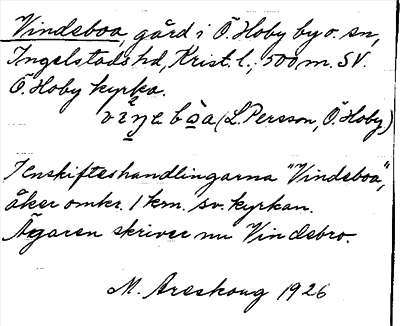 Vindeboa, gård i Ö. Hoby by o. sn,
Ingelstads hd, Krist. l.; 500 m. SV.
Ö. Hoby kyrka.
(L. Persson, Ö. Hoby)
I enskifteshandlingarna "Vindeboa",
åker omkr. 1 km. sv. kyrkan.
Ägaren skriver nu Vindebro.
M. Areskoug 1926